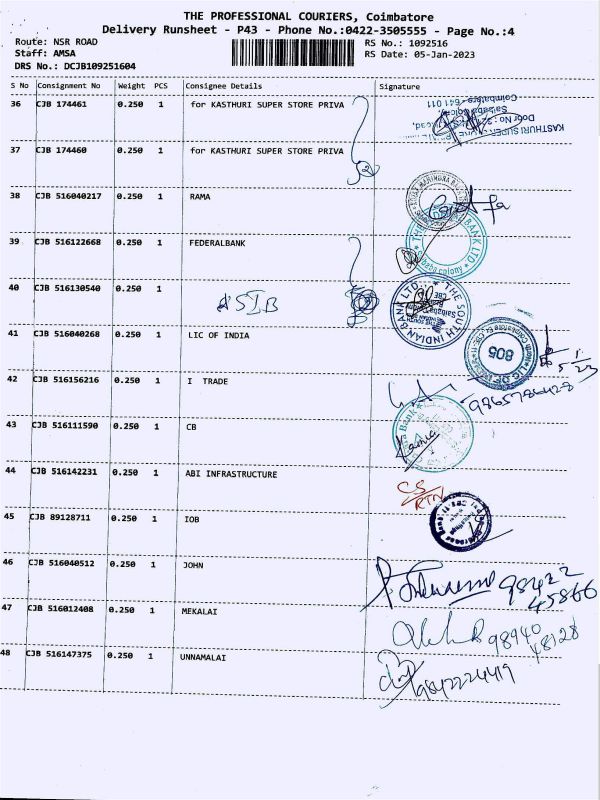 THE PROFESSIONAL COURIERS, Coimbatore
Delivery Runsheet - P43 - Phone No.:0422-3505555 - Page No.:4
Route: NSR ROAD RS No.: 1092516
Staff: AMSA RS Date: 05-Jan-2023
DRS No.: DCJB109251604
S No Consignment No Weight PCS Consignee Details Signature
36 CJB 174461 0.250 1 for KASTHURI SUPER STORE PRIVA
KASTHURI SUPER
Door No: 2
Saibaba Colony,
Coimbatore - 641 011
37 CJB 174460 0.250 1 for KASTHURI SUPER STORE PRIVA
38 CJB 516040217 0.250 1 RAMA
39 CJB 516122668 0.250 1 FEDERALBANK
BANK LTD
Saibaba colony
40 CJB 516130540 0.250 1
THE SOUTH INDIAN BANK LTD.
41 CJB 516040268 0.250 1 LIC OF INDIA
805
5/1/23
42 CJB 516156216 0.250 1 I TRADE
9865786428
43 CJB 516111590 0.250 1 CB
Bank
44 CJB 516142231 0.250 1 ABI INFRASTRUCTURE
CS
RTN
45 CJB 89128711 0.250 1 IOB
46 CJB 516040512 0.250 1 JOHN
98422
45866
47 CJB 516012408 0.250 1 MEKALAI
98940
48128
48 CJB 516147375 0.250 1 UNNAMALAI
9842224419